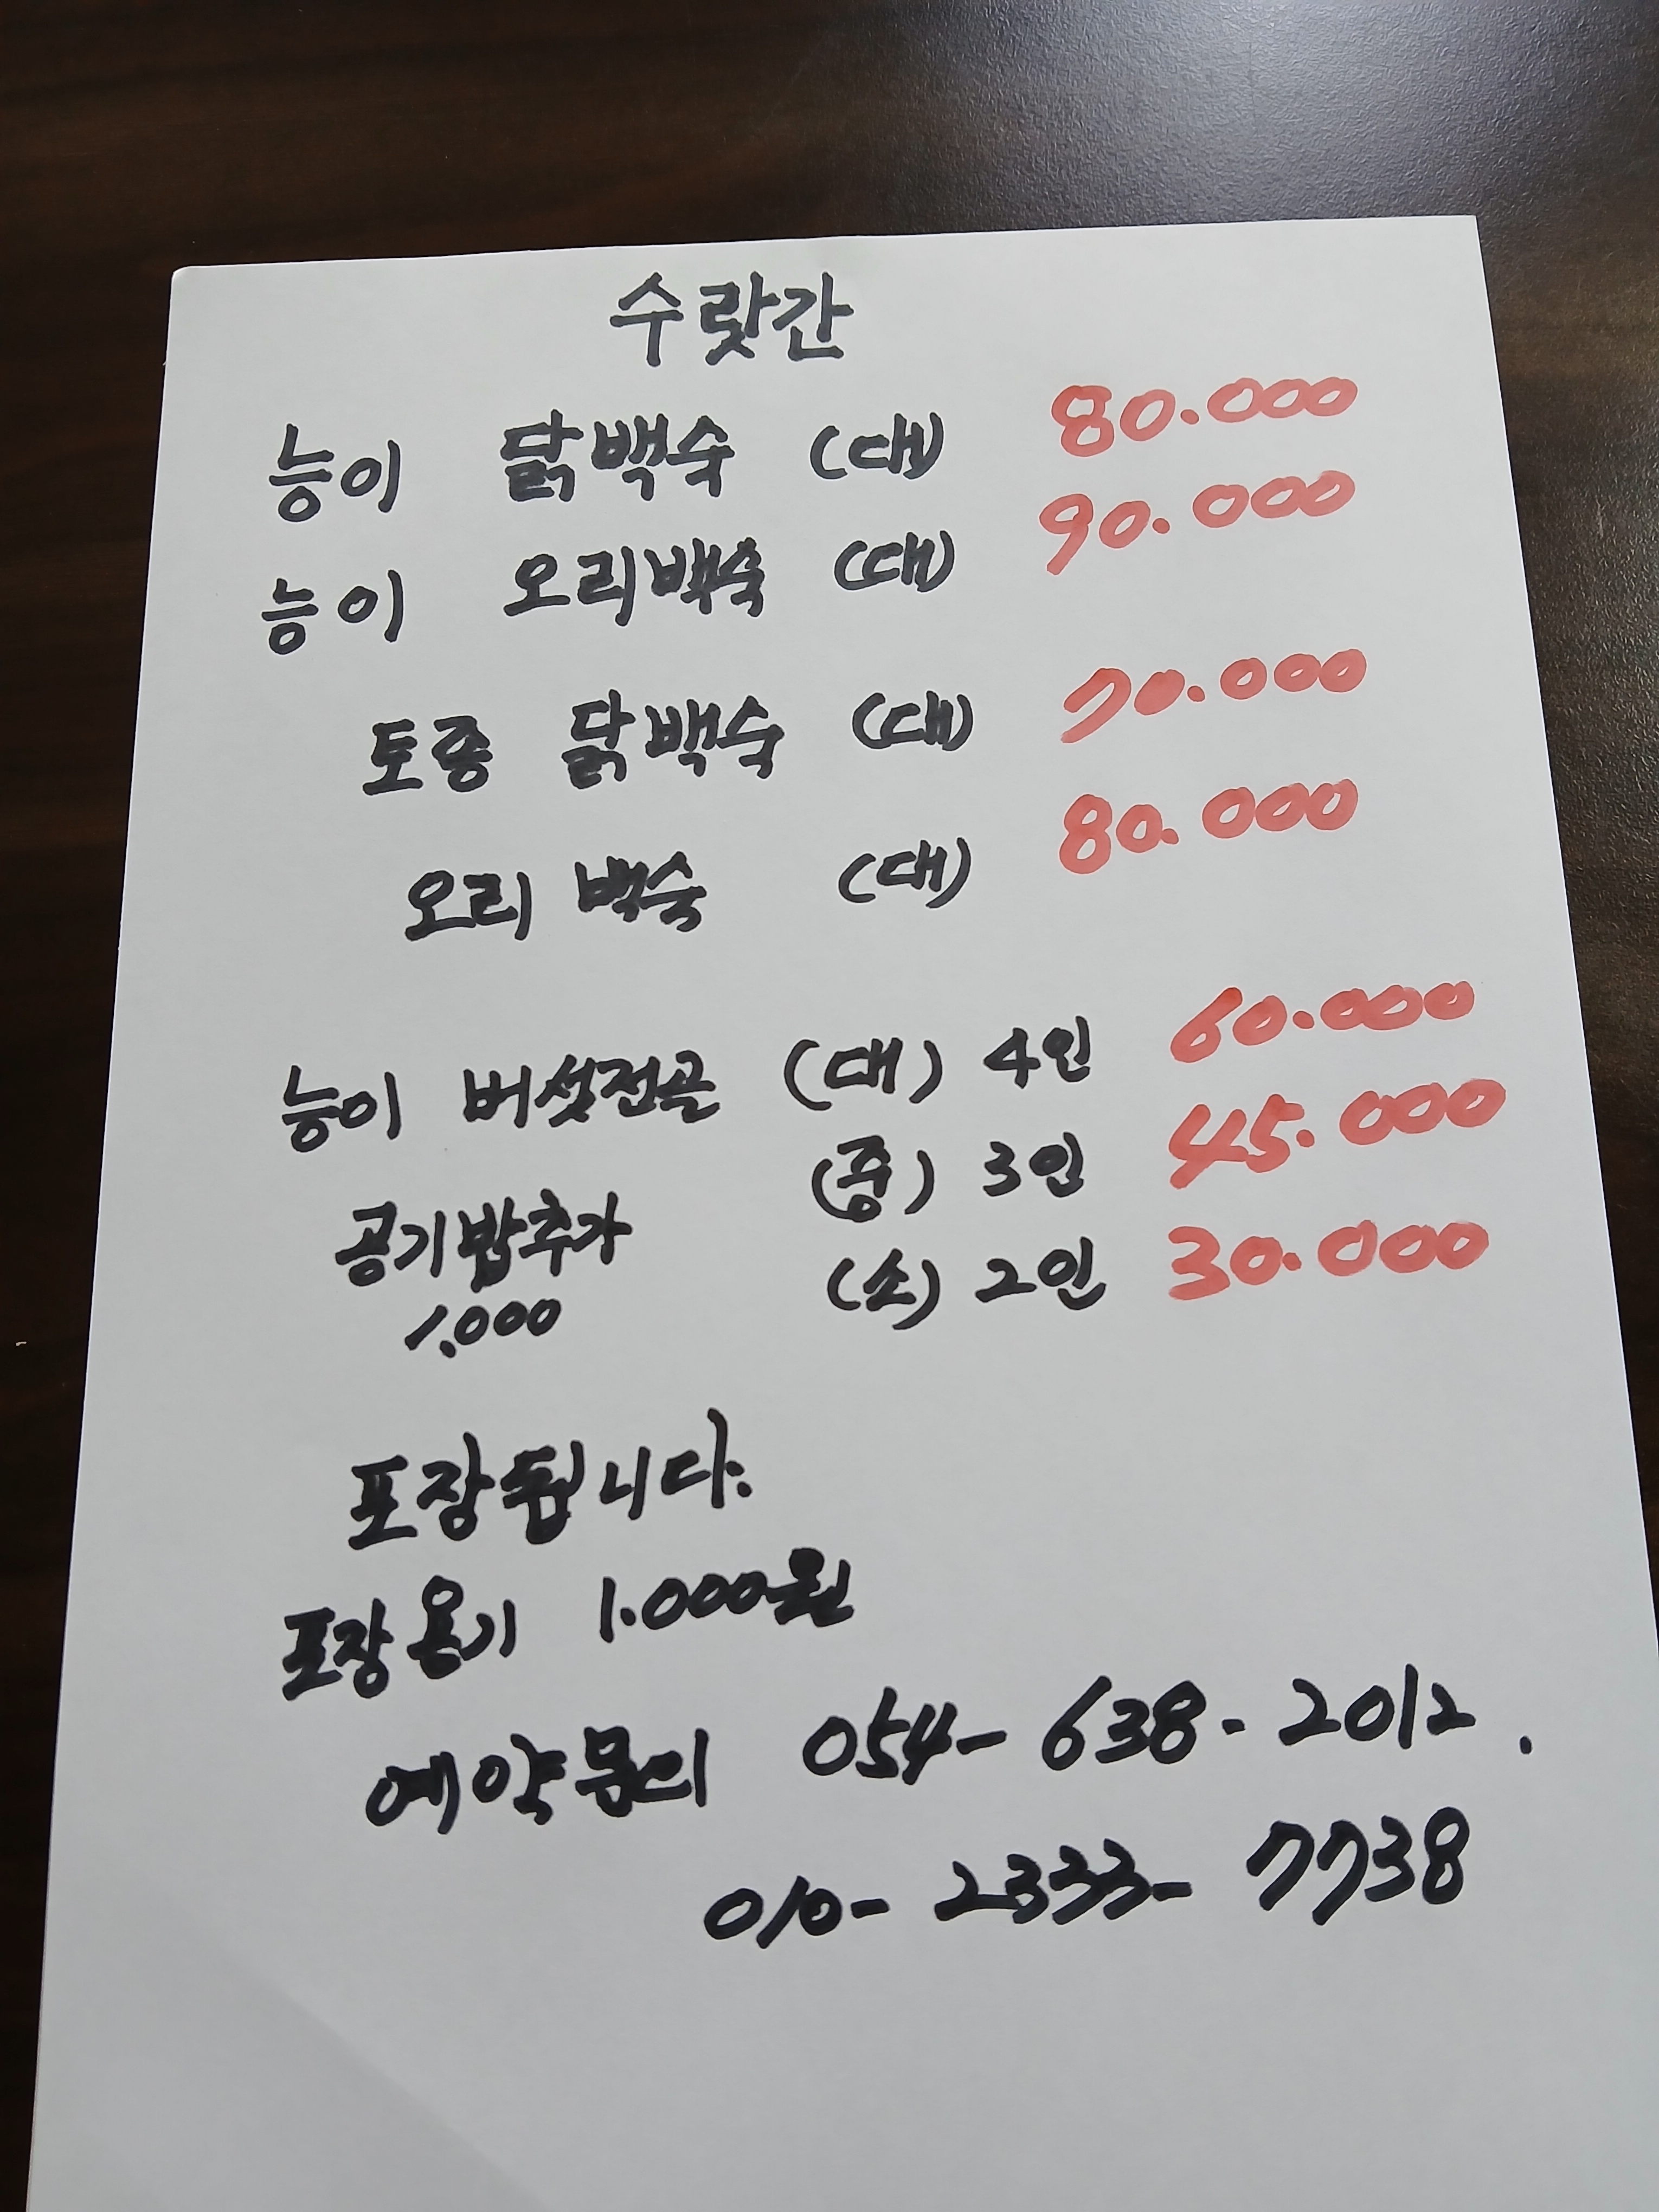 수랏간
능이 닭백숙 (대) 80.000
능이 오리백숙 (대) 90.000
토종 닭백숙 (대) 70.000
오리 백숙 (대) 80.000
능이 버섯전골 (대) 4인 60.000
(중) 3인 45.000
공기밥추가
(소) 2인 30.000
1.000
포장됩니다.
포장용기 1.000원
예약문의 054-638-2012.
010-2333-7738